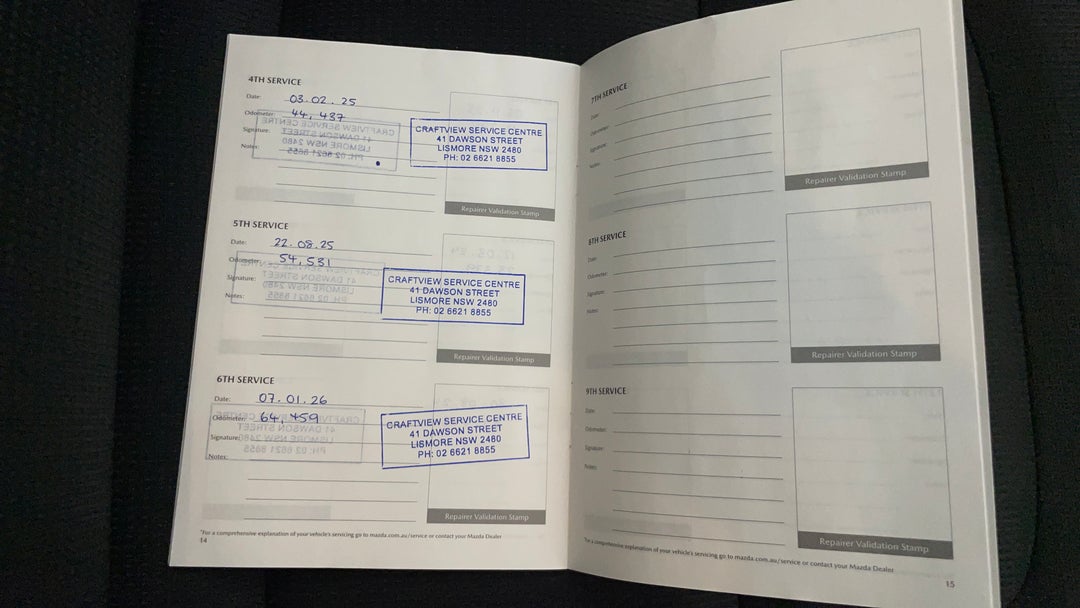 4TH SERVICE
Date: 03.02.25
Odometer: 44,487
Signature:
Notes:
CRAFTVIEW SERVICE CENTRE
41 DAWSON STREET
LISMORE NSW 2480
PH: 02 6621 8855
Repairer Validation Stamp
5TH SERVICE
Date: 22.08.25
Odometer: 54,531
Signature:
Notes:
CRAFTVIEW SERVICE CENTRE
41 DAWSON STREET
LISMORE NSW 2480
PH: 02 6621 8855
Repairer Validation Stamp
6TH SERVICE
Date: 07.01.26
Odometer: 64,459
Signature:
Notes:
CRAFTVIEW SERVICE CENTRE
41 DAWSON STREET
LISMORE NSW 2480
PH: 02 6621 8855
Repairer Validation Stamp
*For a comprehensive explanation of your vehicle's servicing go to mazda.com.au/service or contact your Mazda Dealer
14
7TH SERVICE
Date:
Odometer:
Signature:
Notes:
Repairer Validation Stamp
8TH SERVICE
Date:
Odometer:
Signature:
Notes:
Repairer Validation Stamp
9TH SERVICE
Date:
Odometer:
Signature:
Notes:
Repairer Validation Stamp
*For a comprehensive explanation of your vehicle's servicing go to mazda.com.au/service or contact your Mazda Dealer
15